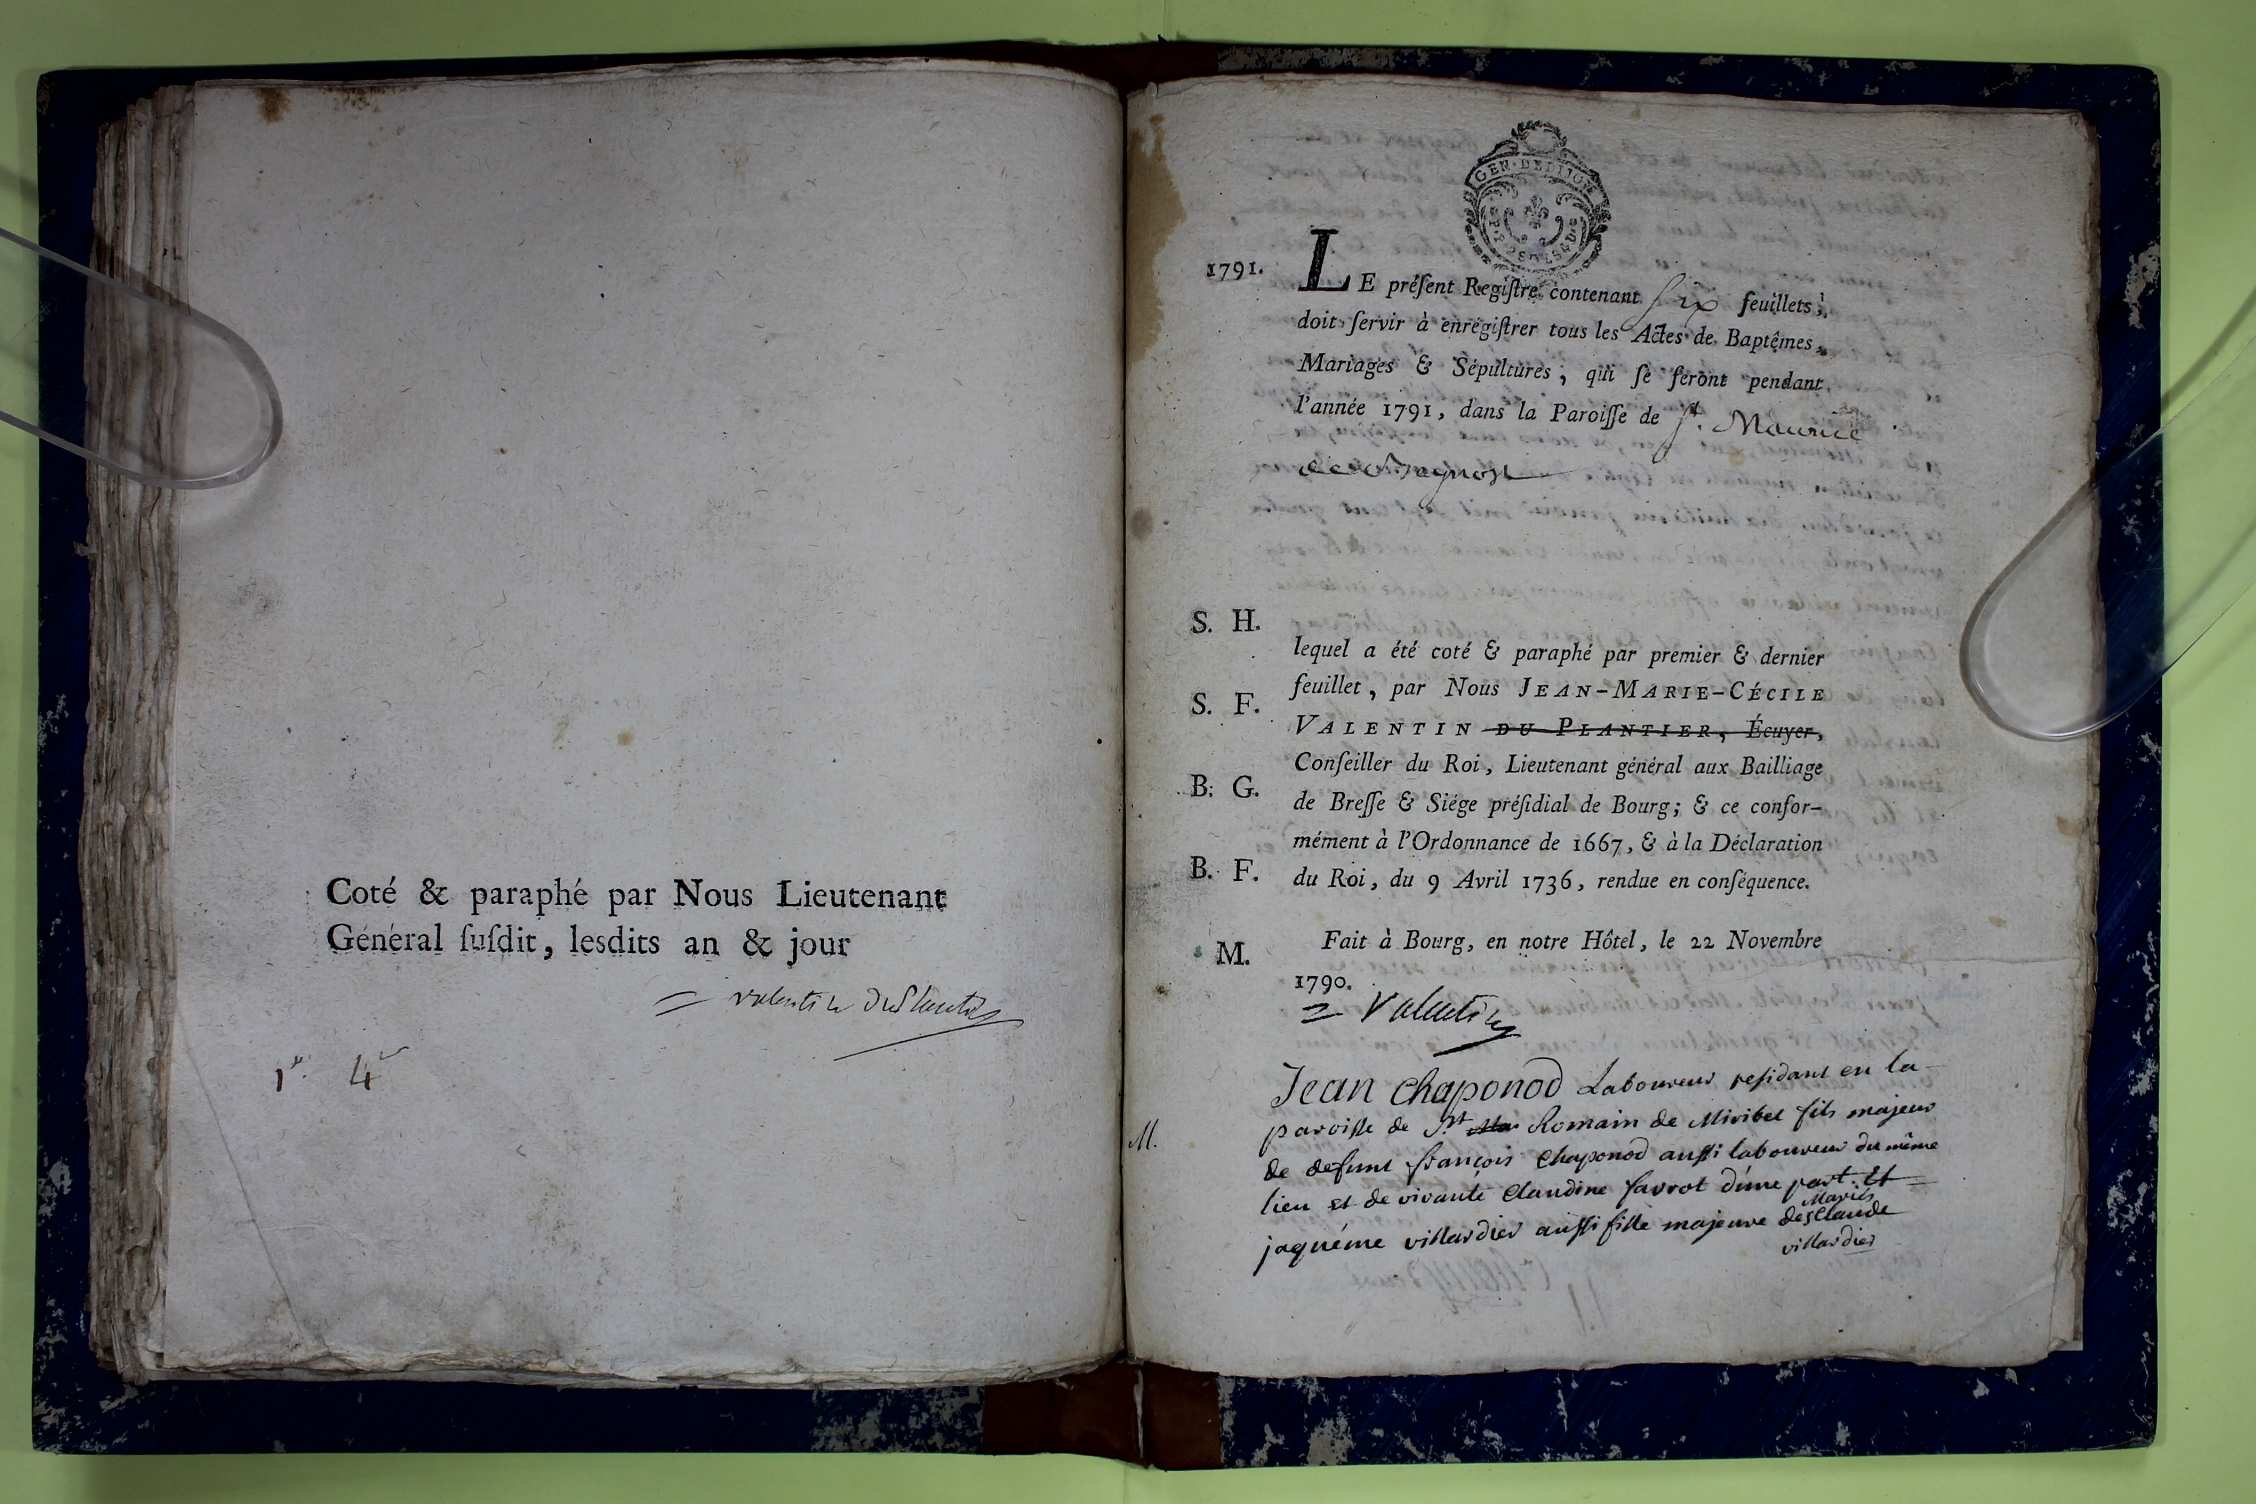 Coté & paraphé par Nous Lieutenant
Général ſuſdit, lesdits an & jour
= valentin duplantier
1er. 4
GEN · DE DIJON
1791.
LE préſent Regiſtre contenant ſix feuillets,
doit ſervir à enregiſtrer tous les Actes de Baptêmes,
Mariages & Sépultures, qui ſe feront pendant
l'année 1791, dans la Paroiſſe de St. Maurice
de
S. H.
S. F.
B. G.
B. F.
M.
lequel a été coté & paraphé par premier & dernier
feuillet, par Nous JEAN-MARIE-CÉCILE
VALENTIN DU PLANTIER, Écuyer,
Conſeiller du Roi, Lieutenant général aux Bailliage
de Breſſe & Siége préſidial de Bourg; & ce confor-
mément à l'Ordonnance de 1667, & à la Déclaration
du Roi, du 9 Avril 1736, rendue en conſéquence.
Fait à Bourg, en notre Hôtel, le 22 Novembre
1790.
= Valentin
M.
Jean Chaponod Laboureur residant en la
paroisse de St Mau Romain de Miribel fils majeur
de defunt françois Chaponod aussi laboureur du même
lieu et de vivante Claudine favrot d'une part. Et
jaquéme villardier aussi fille majeure des Mariés Claude
villardier